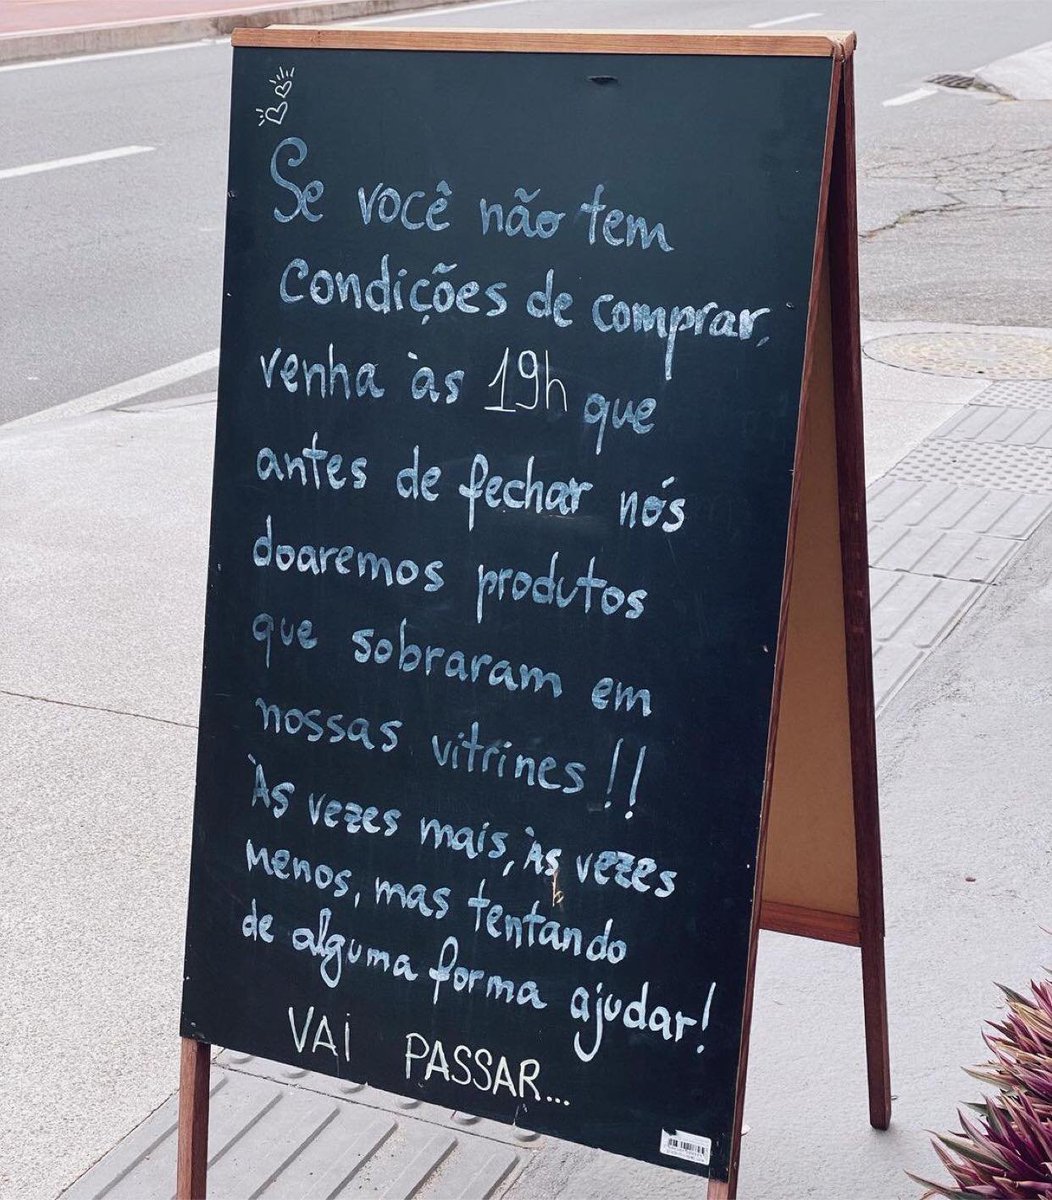 Se você não tem
condições de comprar,
venha às 19h que
antes de fechar nós
doaremos produtos
que sobraram em
nossas vitrines!!
Às vezes mais, às vezes
menos, mas tentando
de alguma forma ajudar!
VAi PASSAR...